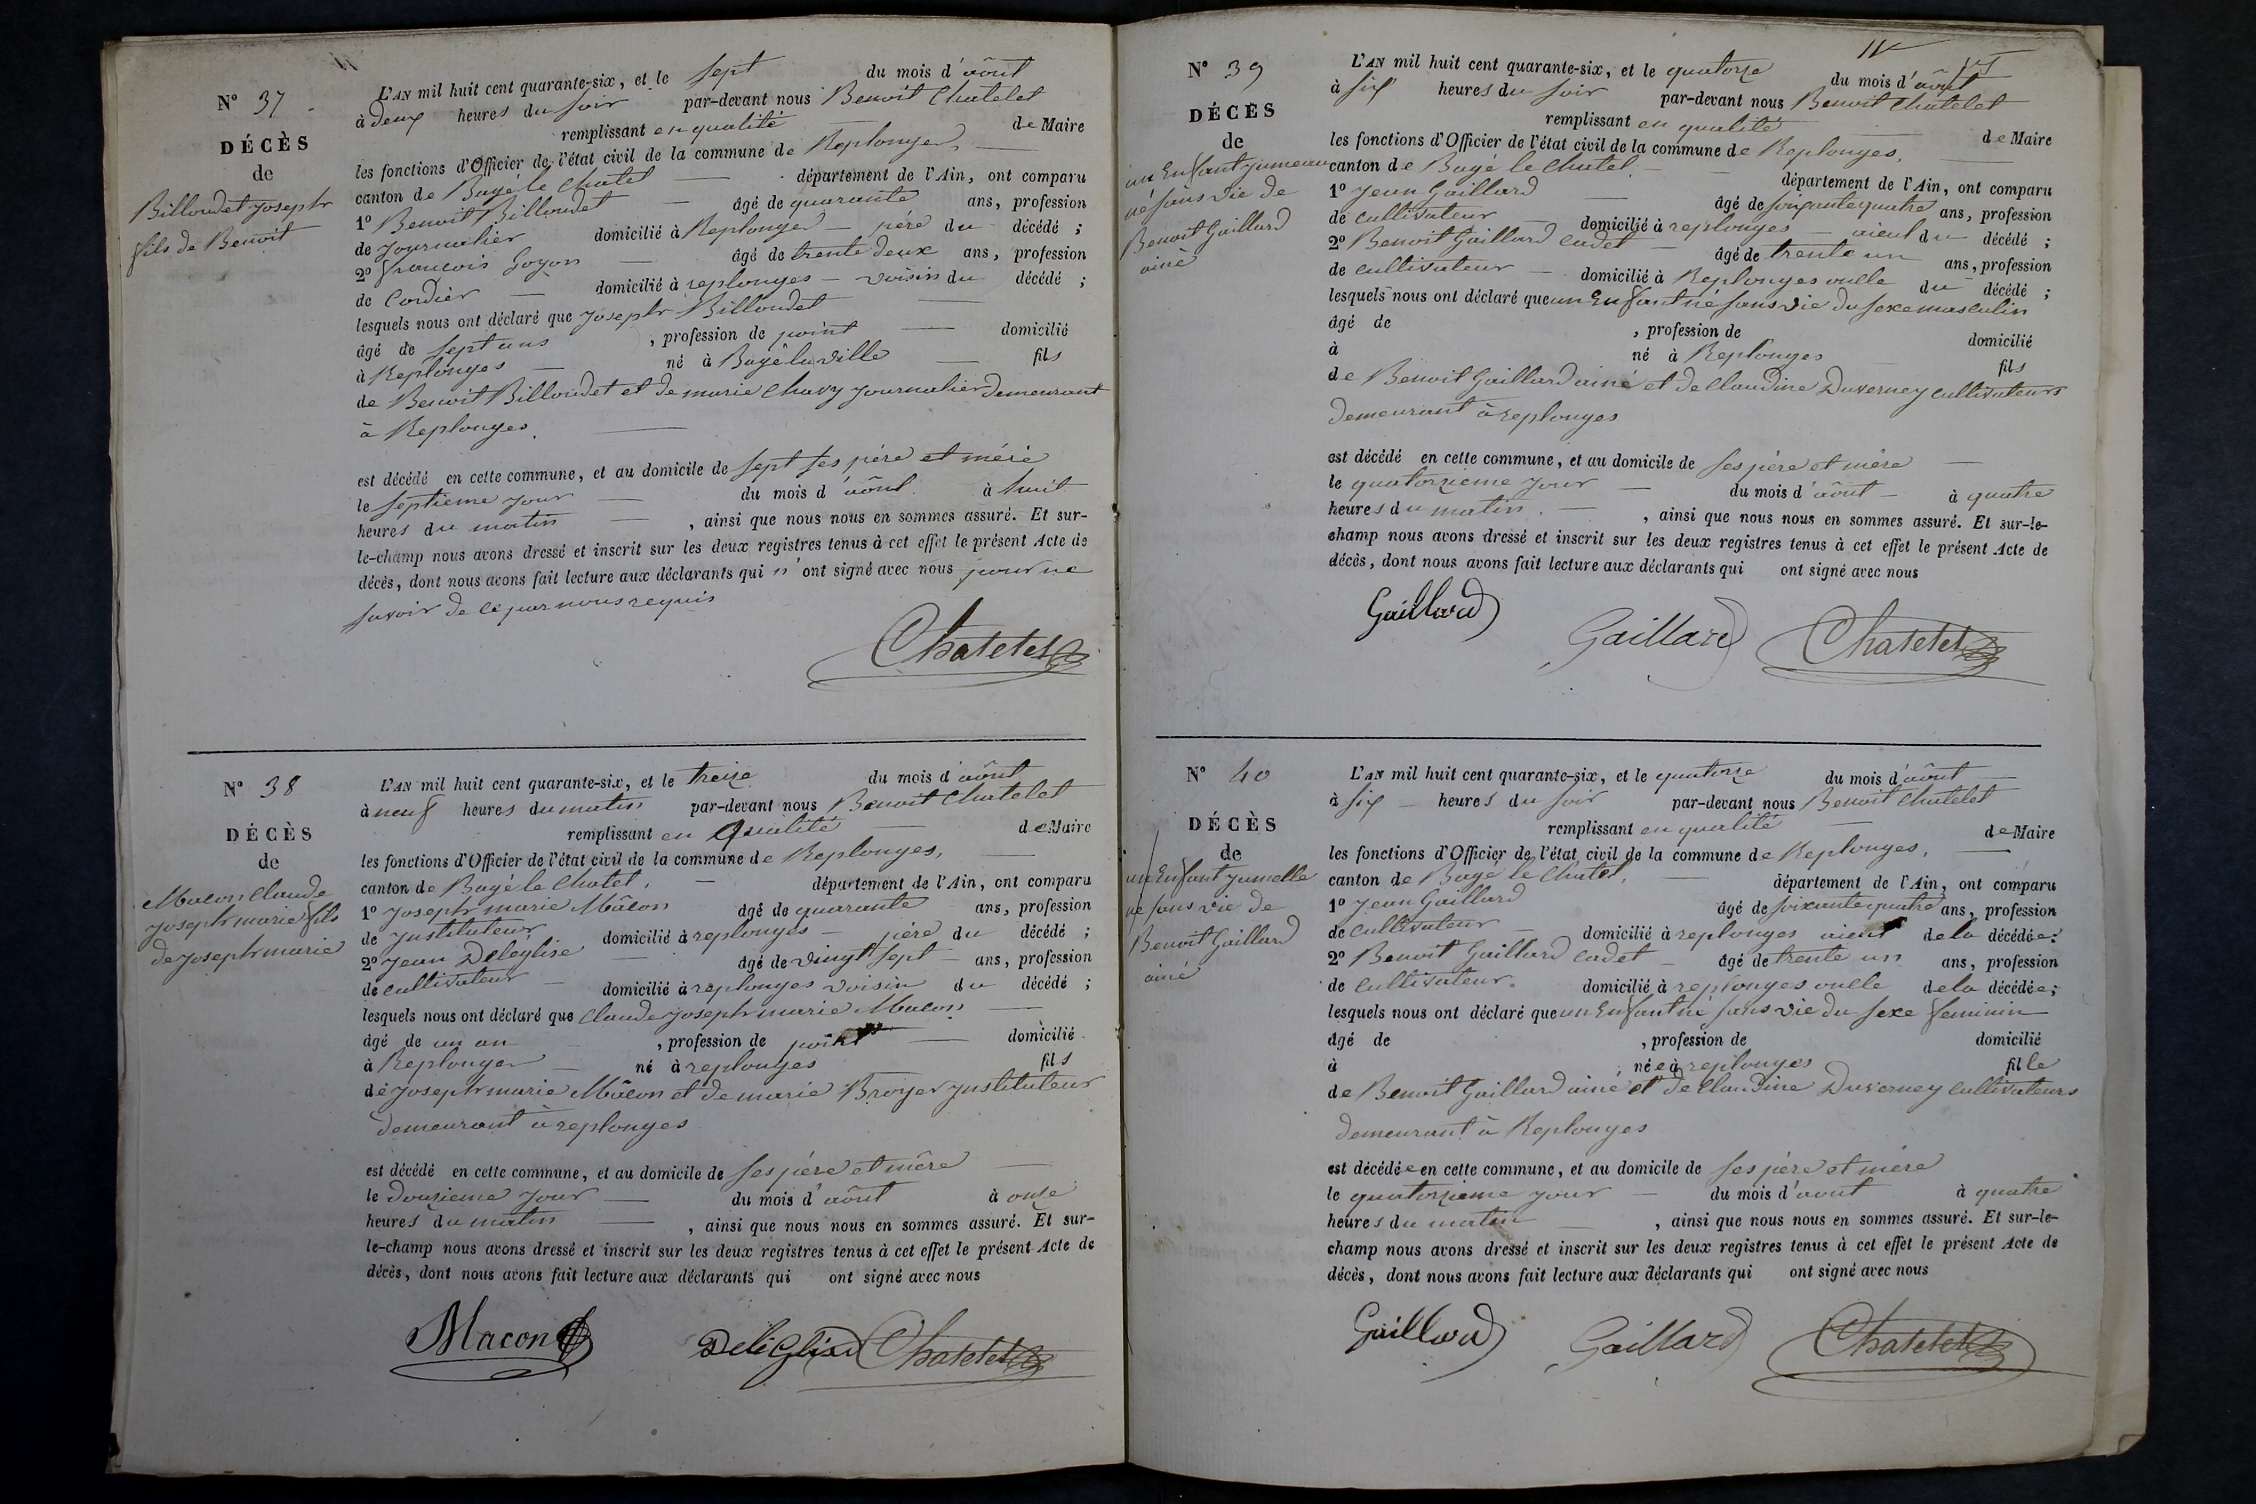 N° 37
DÉCÈS
de
Billoudet Joseph
fils de Benoit
L'AN mil huit cent quarante-six, et le sept du mois d'aôut
à deux heures du soir par-devant nous Benoit Chatelet
remplissant en qualité de Maire
les fonctions d'Officier de l'état civil de la commune de Replonges,
canton de Bagé le Chatel département de l'Ain, ont comparu
1° Benoit Billoudet âgé de quarante ans, profession
de Journalier domicilié à Replonges père du décédé ;
2° francois Goyon âgé de trente deux ans, profession
de Cordier domicilié à replonges voisin du décédé ;
lesquels nous ont déclaré que Joseph Billoudet
âgé de sept ans , profession de point domicilié
à Replonges né à Bagé la ville fils
de Benoit Billoudet et de marie Chavy Journalier demeurant
à Replonges.
est décédé en cette commune, et au domicile de sept ses père et mère
le septieme jour du mois d'aôut à huit
heures du matin , ainsi que nous nous en sommes assuré. Et sur-
le-champ nous avons dressé et inscrit sur les deux registres tenus à cet effet le présent Acte de
décès, dont nous avons fait lecture aux déclarants qui n'ont signé avec nous pour ne
savoir de ce par nous requis
Chatelet
N° 38
DÉCÈS
de
Macon Claude
Joseph marie fils
de Joseph marie
L'AN mil huit cent quarante-six, et le treize du mois d'aôut
à neuf heures du matin par-devant nous Benoit Chatelet
remplissant en qualité de Maire
les fonctions d'Officier de l'état civil de la commune de Replonges,
canton de Bagé le Chatel, département de l'Ain, ont comparu
1° Joseph marie Mâcon âgé de quarante ans, profession
de Instituteur domicilié à replonges père du décédé ;
2° Jean Deléglise âgé de vingt sept ans, profession
de cultivateur domicilié à replonges voisin du décédé ;
lesquels nous ont déclaré que Claude Joseph marie Macon
âgé de un an , profession de point domicilié
à Replonges né à replonges fils
de Joseph marie Mâcon et de marie Broyer Instituteur
demeurant à replonges
est décédé en cette commune, et au domicile de ses père et mère
le douzieme jour du mois d'aôut à onze
heures du matin , ainsi que nous nous en sommes assuré. Et sur-
le-champ nous avons dressé et inscrit sur les deux registres tenus à cet effet le présent Acte de
décès, dont nous avons fait lecture aux déclarants qui ont signé avec nous
Macon Deléglise Chatelet
N° 39
DÉCÈS
de
un Enfant jumeau
né sans vie de
Benoit Gaillard
ainé
L'AN mil huit cent quarante-six, et le quatorze du mois d'aôut
à six heures du soir par-devant nous Benoit Chatelet
remplissant en qualité de Maire
les fonctions d'Officier de l'état civil de la commune de Replonges,
canton de Bagé le Chatel. département de l'Ain, ont comparu
1° Jean Gaillard âgé de soixante quatre ans, profession
de cultivateur domicilié à replonges aieul du décédé ;
2° Benoit Gaillard cadet âgé de trente un ans, profession
de cultivateur domicilié à Replonges oncle du décédé ;
lesquels nous ont déclaré que un Enfant né sans vie du sexe masculin
âgé de , profession de domicilié
à né à Replonges fils
de Benoit Gaillard ainé et de Claudine Duverney cultivateurs
demeurant à replonges
est décédé en cette commune, et au domicile de ses père et mère
le quatorzieme jour du mois d'aôut à quatre
heures du matin. , ainsi que nous nous en sommes assuré. Et sur-le-
champ nous avons dressé et inscrit sur les deux registres tenus à cet effet le présent Acte de
décès, dont nous avons fait lecture aux déclarants qui ont signé avec nous
Gaillard Gaillard Chatelet
N° 40
DÉCÈS
de
un Enfant jumelle
né sans vie de
Benoit Gaillard
ainé
L'AN mil huit cent quarante-six, et le quatorze du mois d'aôut
à six heures du soir par-devant nous Benoit Chatelet
remplissant en qualité de Maire
les fonctions d'Officier de l'état civil de la commune de Replonges,
canton de Bagé le Chatel, département de l'Ain, ont comparu
1° Jean Gaillard âgé de soixante quatre ans, profession
de cultivateur domicilié à replonges aieul de la décédée ;
2° Benoit Gaillard cadet âgé de trente un ans, profession
de cultivateur. domicilié à replonges oncle de la décédée ;
lesquels nous ont déclaré que un Enfant né sans vie du sexe feminin
âgé de , profession de domicilié
à , née à replonges fille
de Benoit Gaillard ainé et de Claudine Duverney cultivateurs
demeurant à Replonges
est décédée en cette commune, et au domicile de ses père et mère
le quatorzieme jour du mois d'aout à quatre
heures du matin , ainsi que nous nous en sommes assuré. Et sur-le-
champ nous avons dressé et inscrit sur les deux registres tenus à cet effet le présent Acte de
décès, dont nous avons fait lecture aux déclarants qui ont signé avec nous
Gaillard Gaillard Chatelet